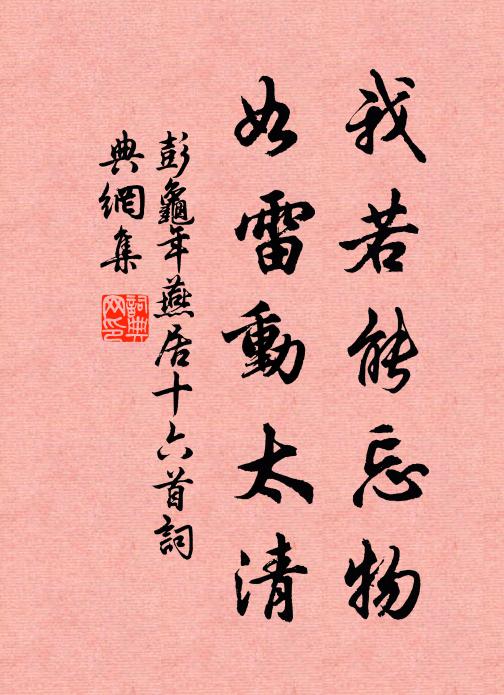 我若能忘物
如雷動太清
彭龜年燕居十六首詞
典網集
詞典
网印